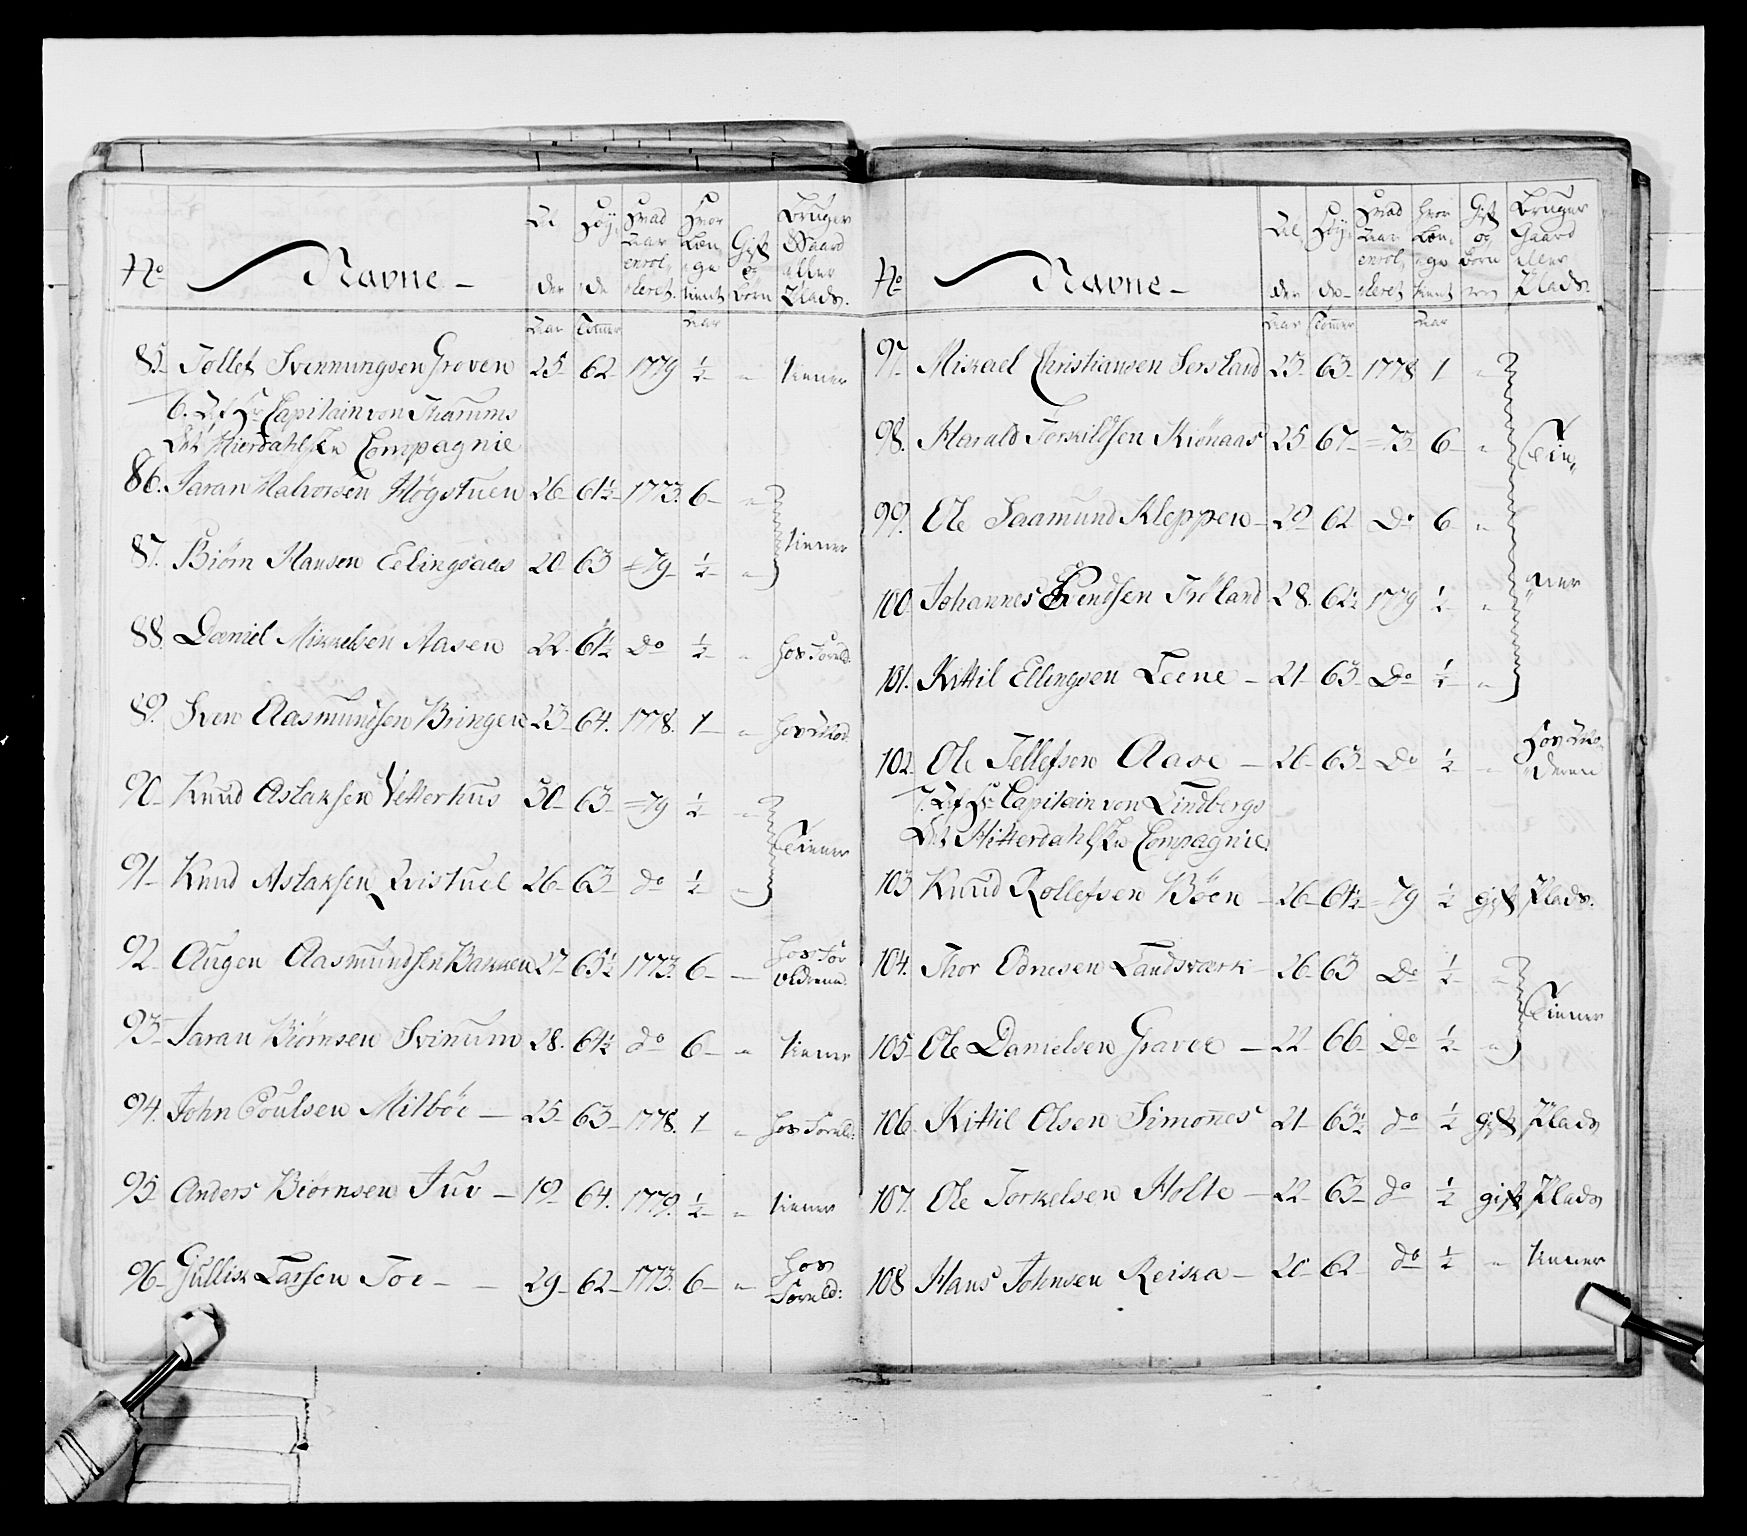 No Navne - Al der Høy de Hvad Aar enrol leret Hvor Læn ge tient Gift og Børn Bruger Gaard eller Plads.
Aar Tommer Aar
85. Tollef Svennungsen Groven 25 62 1779 ½ " tiener
6. Af Hr Capitain von Thamms
Det Hierdahlske Compagnie
86. Jaran Halvorsen Høgstuen 26 61½ 1773. 6 "
87. Biørn Hansen Edlingsaas 20 63 = 79 ½ " tiener
88. Daniel Mikkelsen Aasen 22 61½ Do ½ " hos Foreld:
89. Sven Aasmundsen Bringen 23 64. 1778. 1 "
90. Knud Aslaksen Vetterhus 30 63 = 79 ½ "
91. Knud Aslaksen Qvistuel 26 63 do ½ " Tiener
92. Augen Aasmundsen Bakken 27 65½ 1773 6 - hos For ældrene.
93. Jaran Biørnsen Svinum 28. 61½ do 6 " tiener
94. John Poulsen Mitbøe - 25 63 1778. 1 " hos Foreld:
95. Anders Biørnsen Juv - 19 64. 1779. ½ " tiener
96. Gullik Larsen Toe - 29 62 1773. 6 " hos Foreld:
No Navne - Al der Høy de Hvad Aar enrol leret Hvor Læn ge tient Gift og Børn Bruger Gaard eller Plads.
Aar Tommer Aar
97. Mikael Christiansen Sersland 23 63 1778 1 "
98. Harald Torkildsen Kiønaas 25 67 = 73 6 " Tie,
99. Ole Saamund Kleppen 29 62 Do 6 "
100. Johannes Knudsen Frøland 28. 62½ 1779 ½ " ner
101. Kittil Ellingsen Leene - 21 63 Do ½ "
102. Ole Tellefsen Aase - 26 63 Do ½ " Hos Mo, deren
7. Af Hr Capitain von Lindbergs
Det Hitterdahlske Compagnie.
103 Knud Rollefsen Bøen - 26 61½ = 79 ½ gift Plads.
104. Thor Ednesen Landsværk - 26 63 Do ½ "
105. Ole Danielsen Graver - 22 66 Do ½ " Tiener
106. Kittil Olsen Simones 21 63½ do ½ gift Plads
107. Ole Torkelsen Holte - 22 63 do ½ gift Plads
108 Hans Johnsen Reiska - 20 62 do ½ " tiener